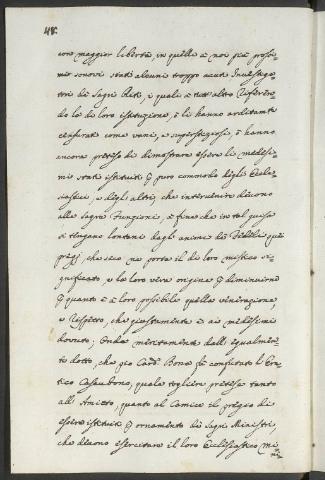 48.
con maggior libertà, in quelli à noi più prossi-
mi sonovi stati alcuni troppo acuti Investiga-
tri de Sagri Riti, i quali à tutt'altro riferen-
do la di loro istituzione, ò li hanno arditamte
censurati come vani, e superstiziosi, ò hanno
ancora preteso di dimostrare essere li medesi-
mi stati istituiti per puro commodo degli Eccle-
siastici, e degli altri, che intervenire devono
alle sagre Funzioni, à fine che in tal guisa
si tengano lontani dagli animi de Fedeli que'
pregj, che seco ne porta il di loro mistico si-
gnificato, e la loro vera origine per diminuirne
per quanto è à loro possibile quella venerazione,
e rispetto, che giustamente è ai medesimi
dovuto; Onde meritamente dall'egualmen-
te dotto, che pio Card. Bona fù confutato l'Ere-
tico Casaubono, quale togliere pretese tanto
all'Amitto, quanto al Camice il pregio di
essere istituiti per ornamento de Sagri Ministri,
che devono esercitare il loro Ecclesiastico mi-
ni-